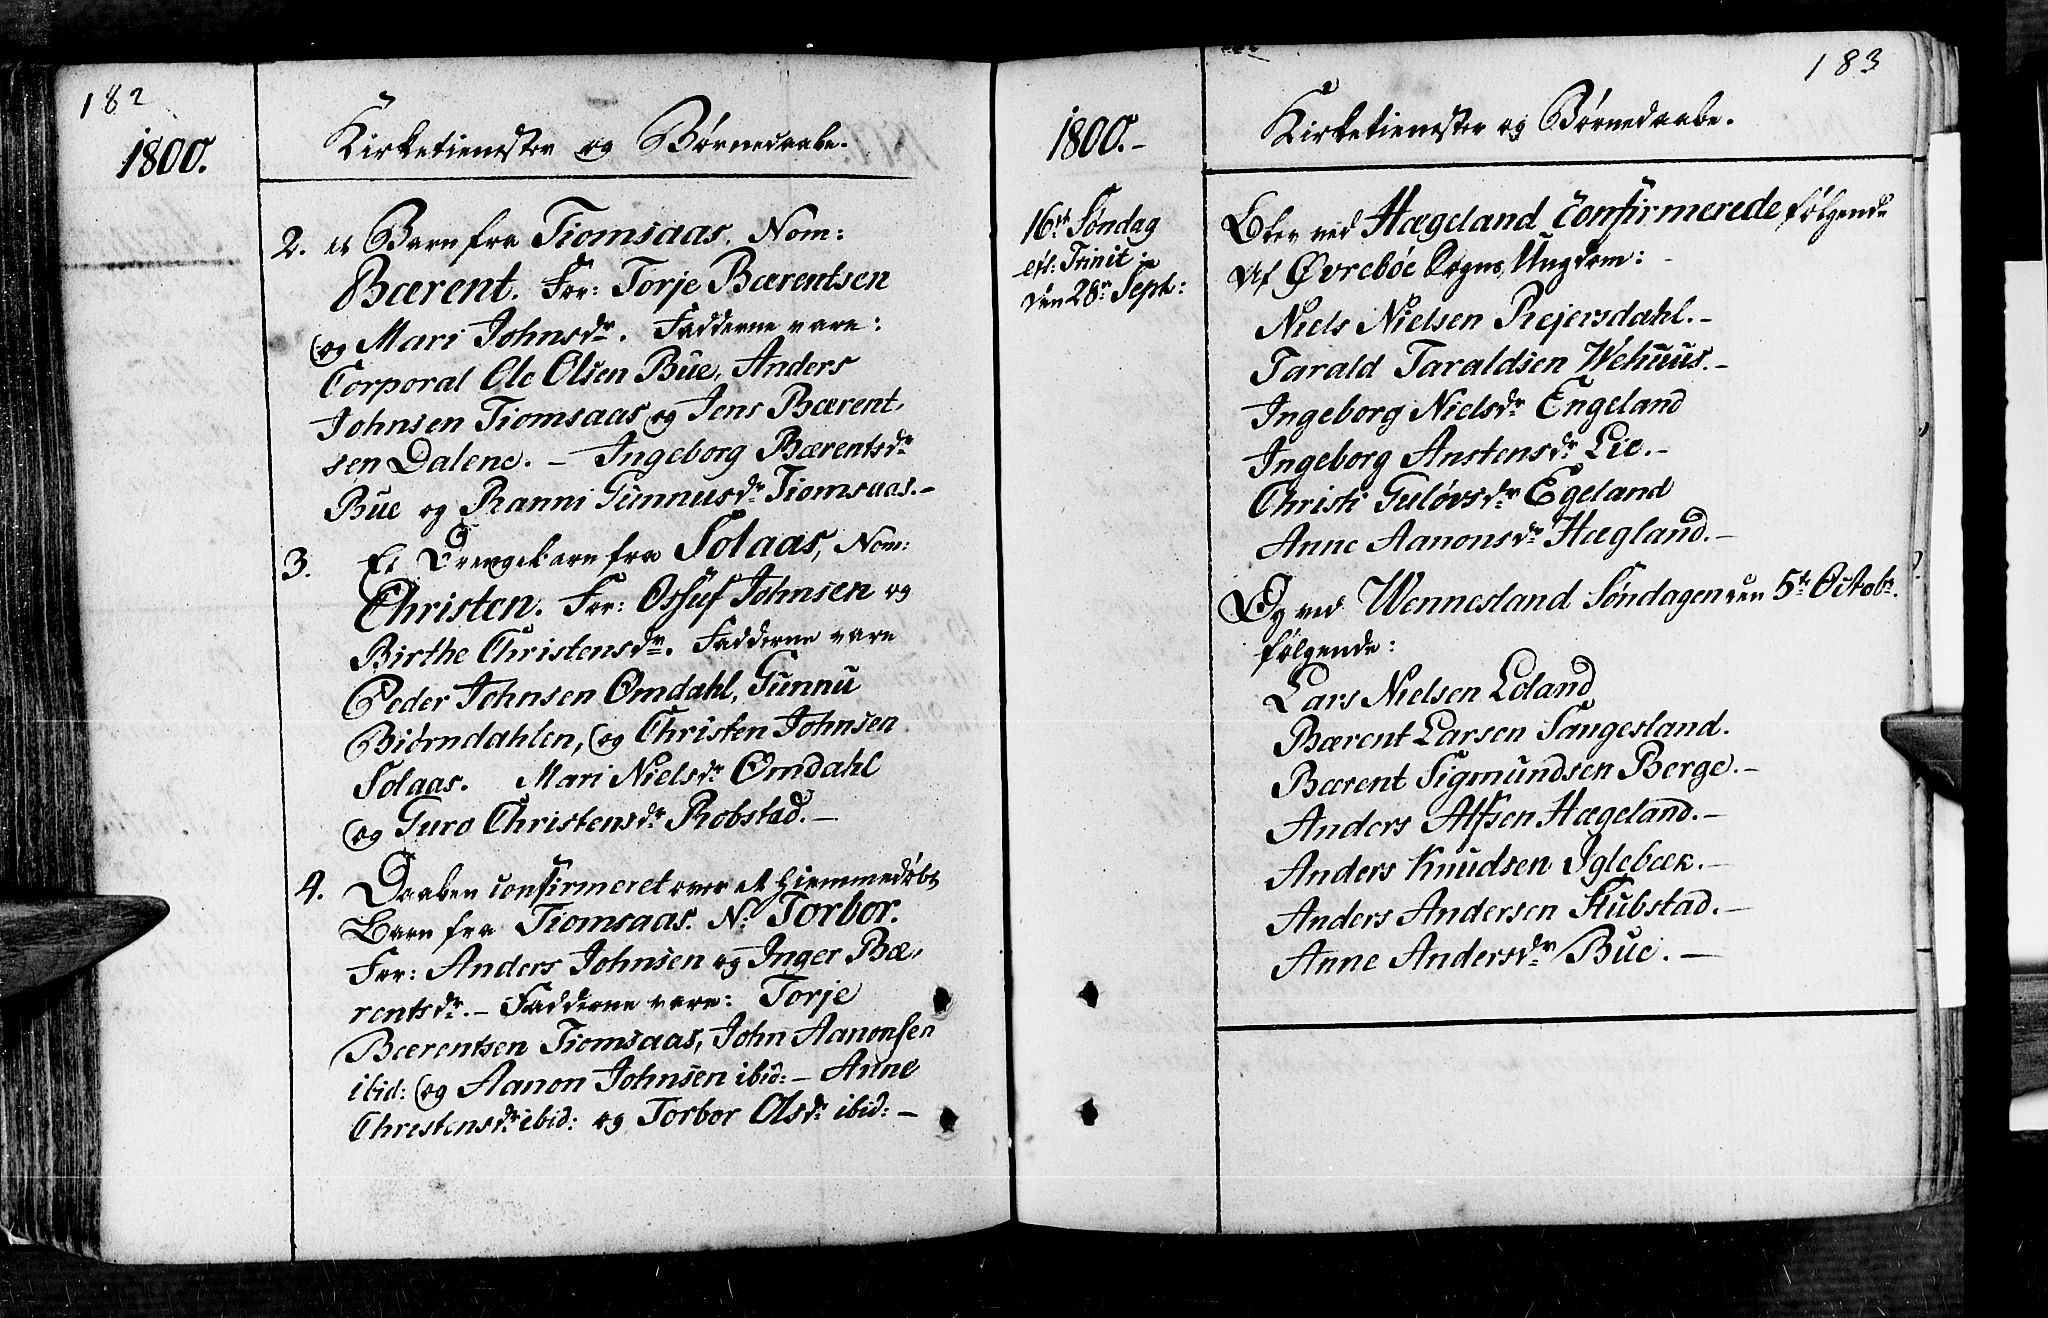 182
1800.
Kirketienester og Børnedaabe.
2. et Barn fra Tiomsaas. Nom:
Bærent. For: Torje Bærentsen
og Mari Johnsdr. Fadderne vare:
Corporal Ole Olsen Bue, Anders
Johnsen Tiomsaas og Jens Bærent,
sen Dalene. – Ingeborg Bærentsdr
Bue og Ranni Gunnusdr Tiomsaas. –
3. Et Drengebarn fra Solaas, Nom:
Christen. For: Ossuf Johnsen og
Birthe Christensdr. Fadderne vare
Peder Johnsen Omdahl, Gunnu
Biørndahlen, og Christen Johnsen
Solaas. Mari Nielsdr Omdahl
og Guro Christensdr Robstad. –
4. Daaben confirmeret over et hjemmedøbt
Barn fra Tiomsaas. N. Torbor.
For: Anders Johnsen og Inger Bæ,
rentsdr. – Fadderne vare: Torje
Bærentsen Tiomsaas, John Aanonsen
ibid: og Aanon Johnsen ibid: – Anne
Christensdr ibid: og Torbor Olsdr ibid: –
183
1800. –
Kirketienester og Børnedaabe.
16de Søndag
eft: Trinit:
den 28de Sept:
Blev ved Hægeland confirmerede følgende
Af Øvrebøe Sogns Ungdom:
Niels Nielsen Rejersdahl. –
Tarald Taraldsen Wehuus. –
Ingeborg Nielsdr Engeland
Ingeborg Anstensdr Lie. –
Christi Guløvsdr Egeland
Anne Aanonsdr Hægland. –
Og ved Wennesland Søndagen den 5te Octobr.
følgende:
Lars Nielsen Loland
Bærent Larsen Sangesland.
Bærent Sigmundsen Berge. –
Anders Alfsen Hægeland. –
Anders Knudsen Iglebæk. –
Anders Andersen Stubstad. –
Anne Andersdr Bue. –